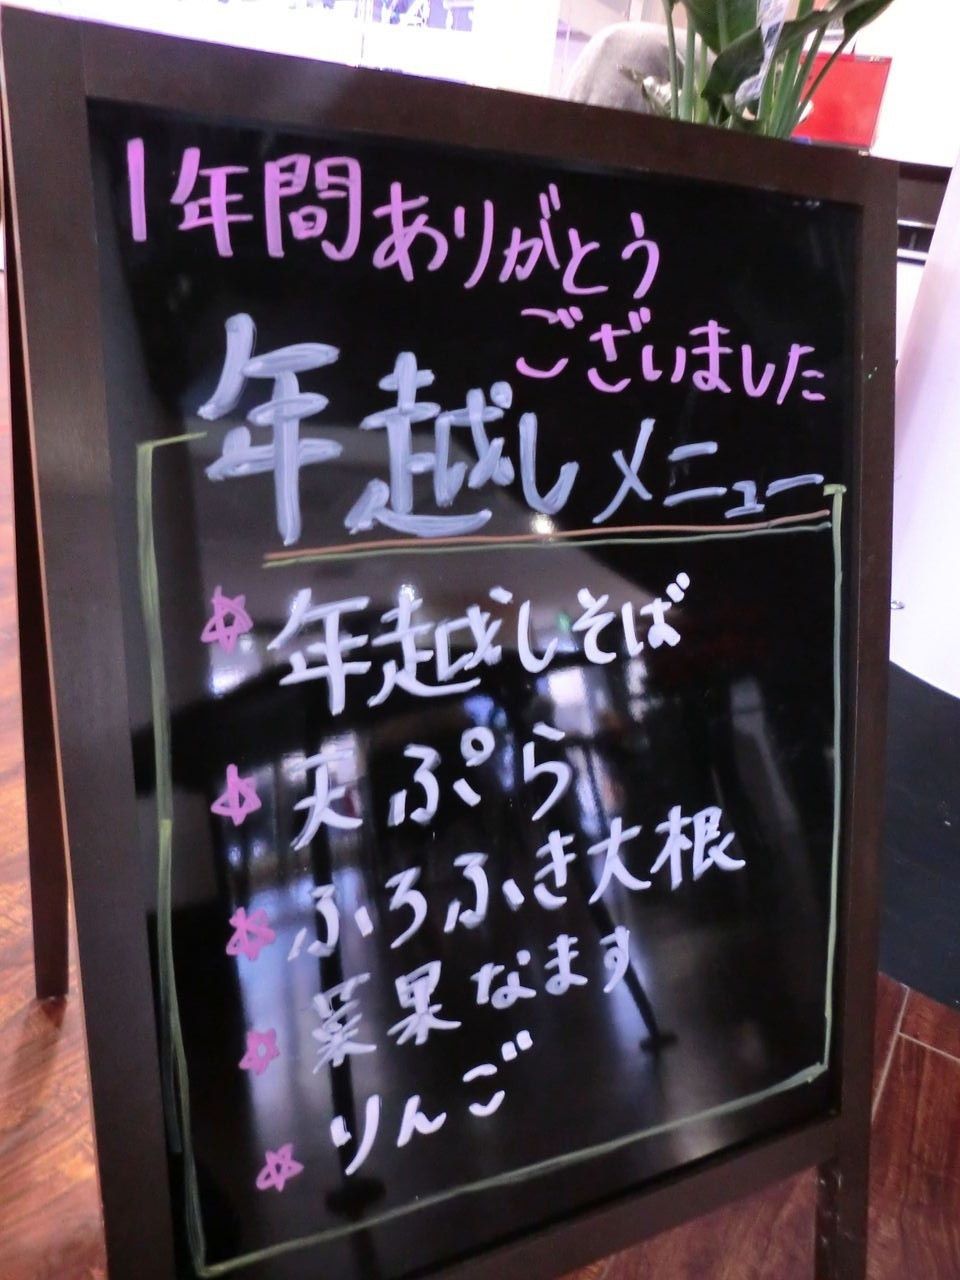 1年間ありがとう
ございました
年越しメニュー
☆年越しそば
☆天ぷら
☆ふろふき大根
☆菜果なます
☆りんご